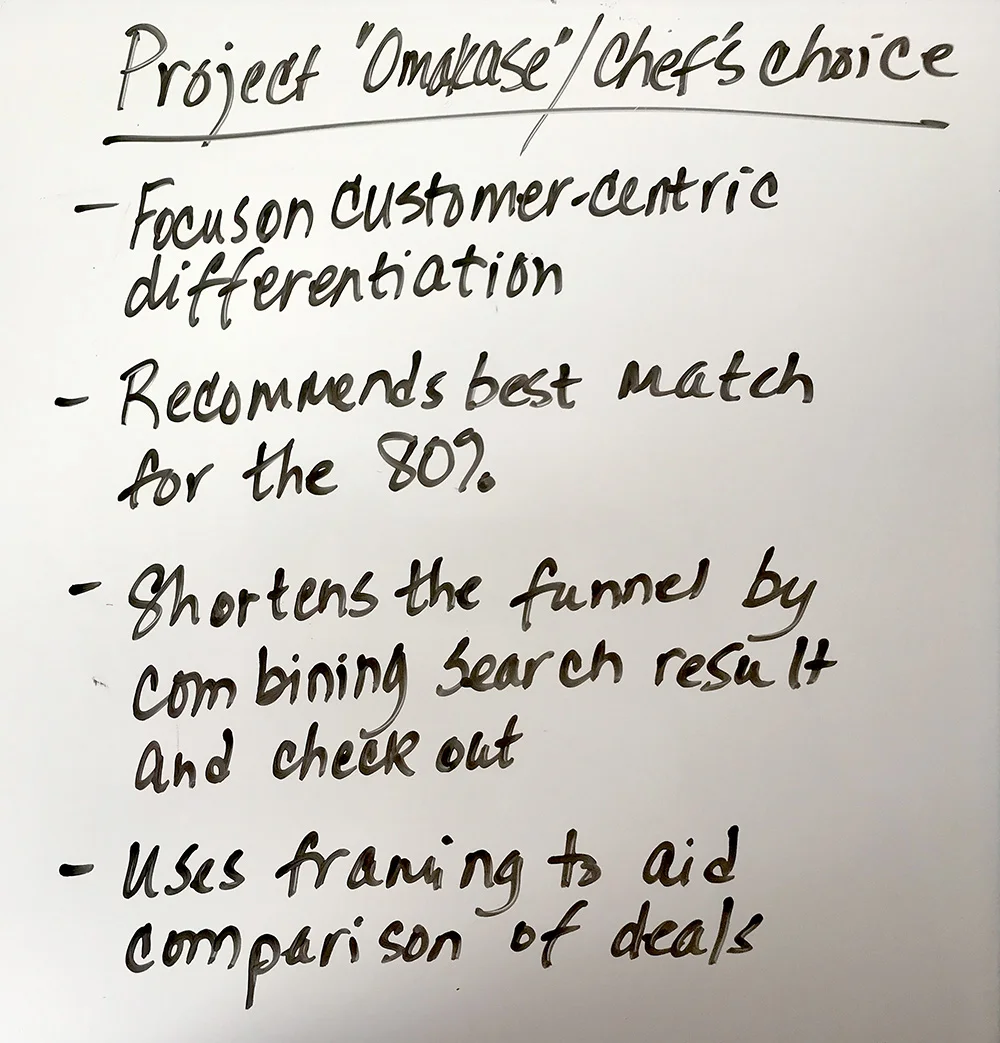 Project "Omakase"/Chef's choice
- Focus on customer-centric
differentiation
- Recommends best match
for the 80%
- Shortens the funnel by
combining search result
and check out
- Uses framing to aid
comparison of deals